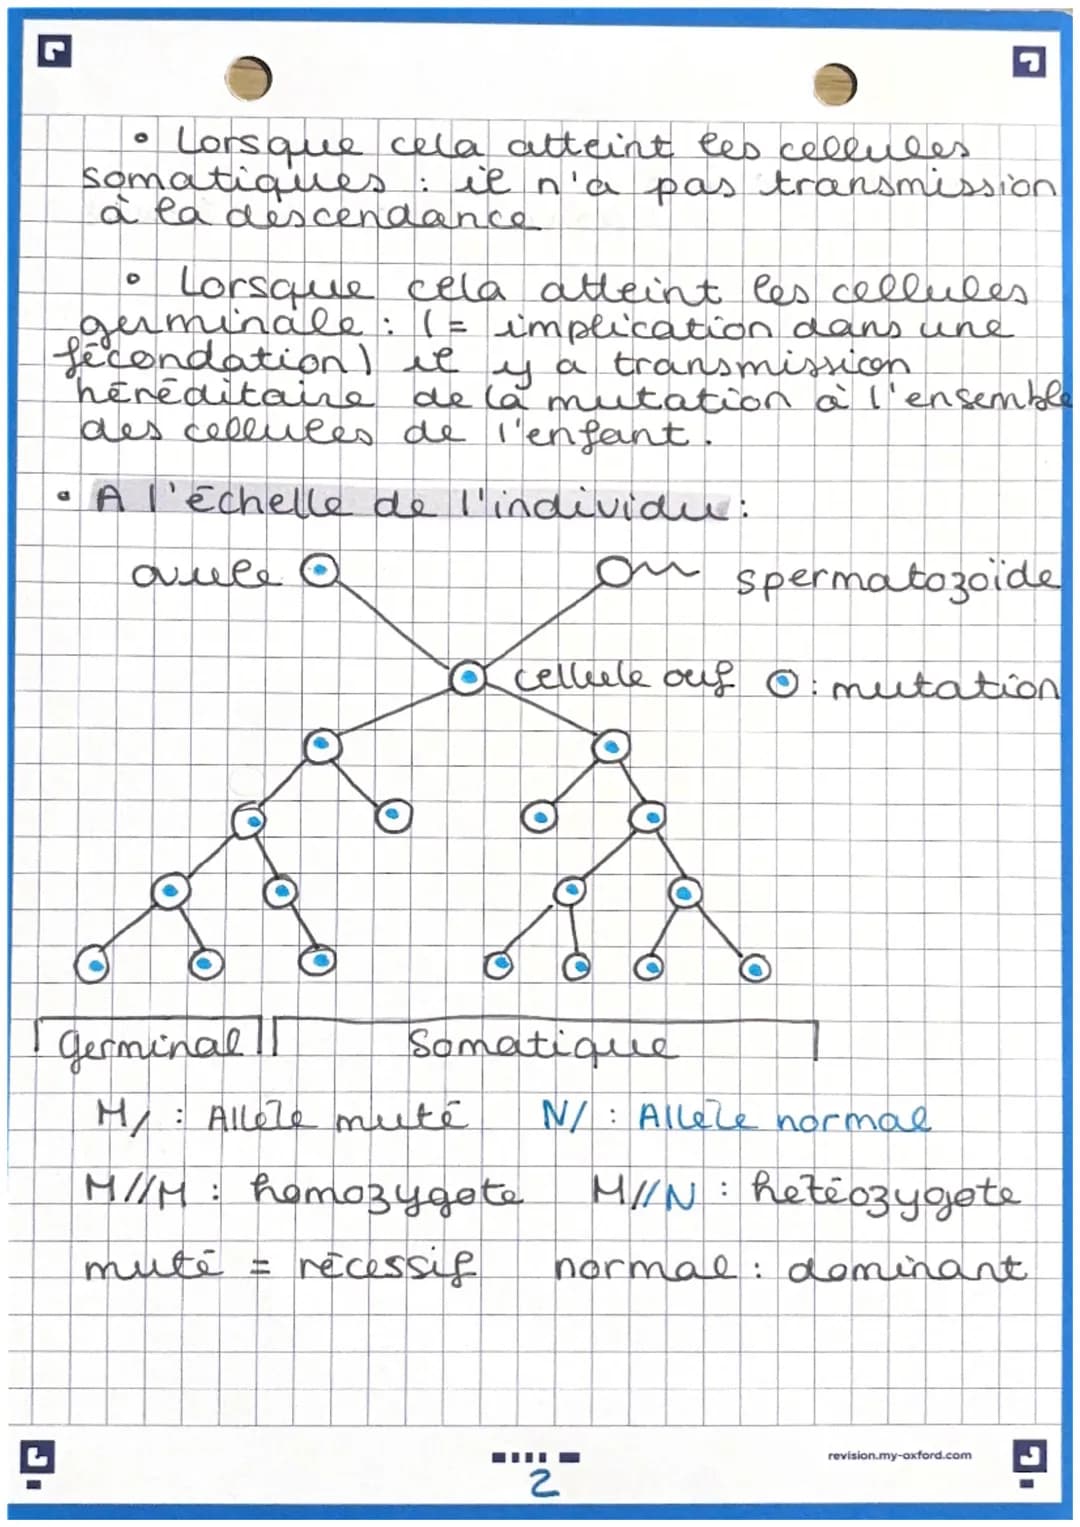 • Lorsque cela atteint les cellules
somatiques : il n'a pas transmission
à la descendance
• Lorsque cela atteint les cellules
germinale : (= implication dans une
fécondation) il y a transmission
héréditaire de la mutation à l'ensemble
des cellules de l'enfant.
• A l'échelle de l'individu :
ovule
spermatozoïde
cellule œuf : mutation
germinal
Somatique
M/ : Allèle muté N/ : Allèle normal
M//M : homozygote M//N : hetéozygote
muté = récessif normal : dominant
revision.my-oxford.com
2